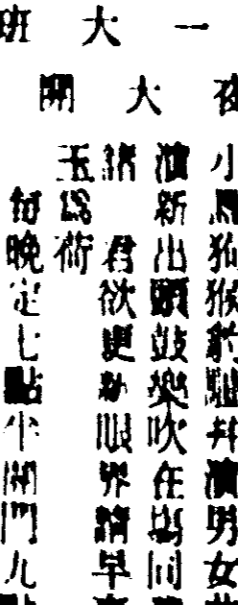 一大班
夜大開
小馬狗猴豹驢并演男女
演新出頭鼓樂吹在塲同
諸君欲更新眼界請早
玉臨荷
每晚定七點半開門九點